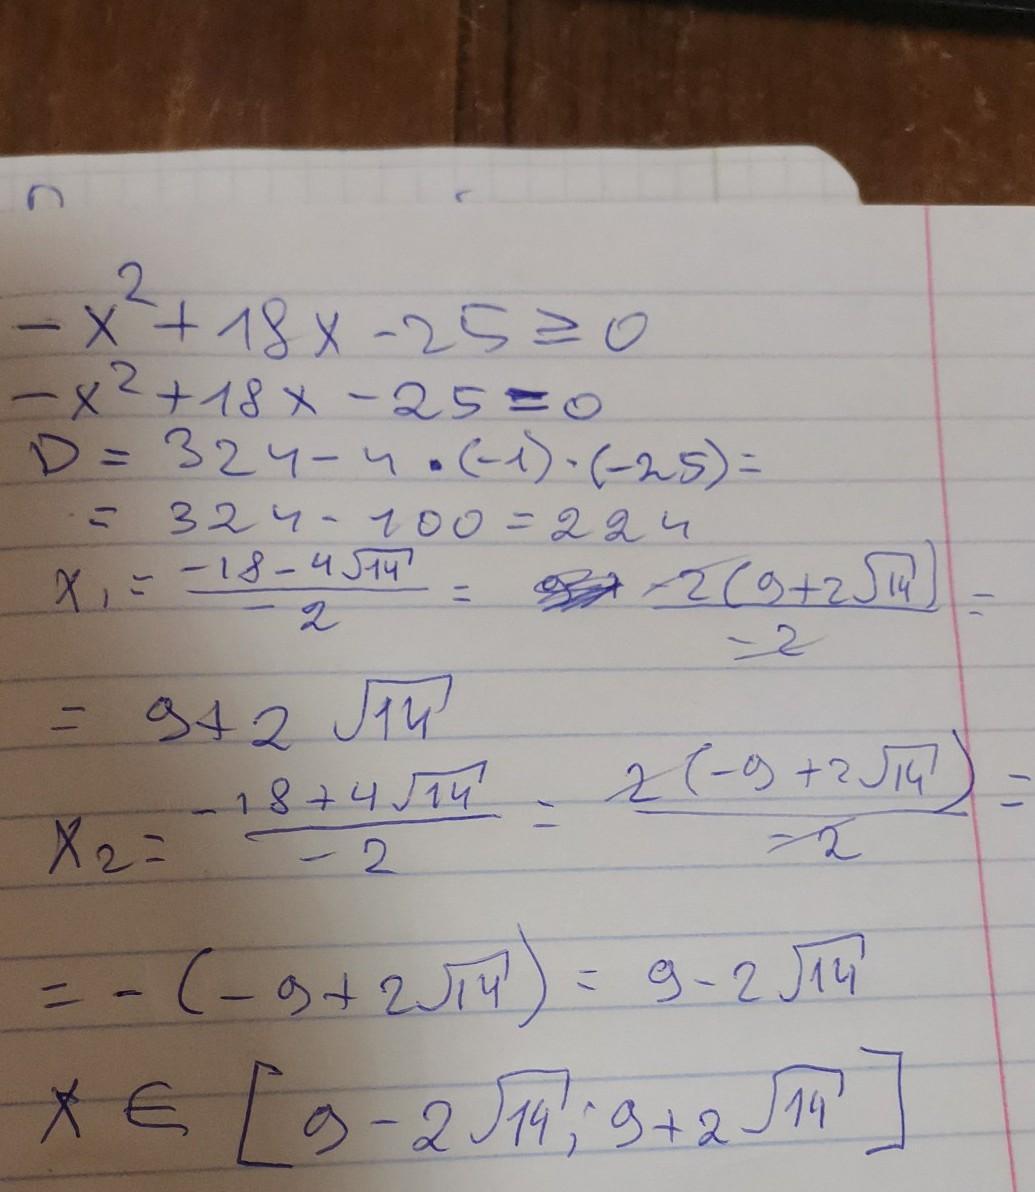 -x²+18x-25≥0
-x²+18x-25=0
D=324-4·(-1)·(-25)=
=324-100=224
x₁=(-18-4√14)/(-2)=-2(9+2√14)/(-2)=
=9+2√14
x₂=(-18+4√14)/(-2)=2(-9+2√14)/(-2)=
=-(-9+2√14)=9-2√14
x∈[9-2√14;9+2√14]